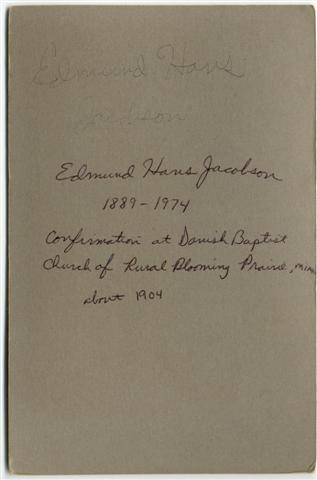 Edmund Hans
Jacobson
Edmund Hans Jacobson
1889-1974
Confirmation at Danish Baptist
Church of Rural Blooming Prairie, Minn
about 1904